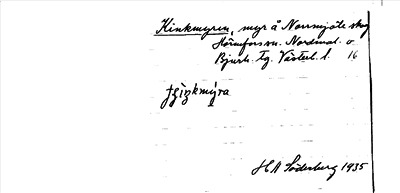 Kinkmyren, myr å Norrmjöle skog
Hörnefors sn. Nordmal. o.
Bjurh. tg. Västerb. l. 16
H A Söderberg 1935